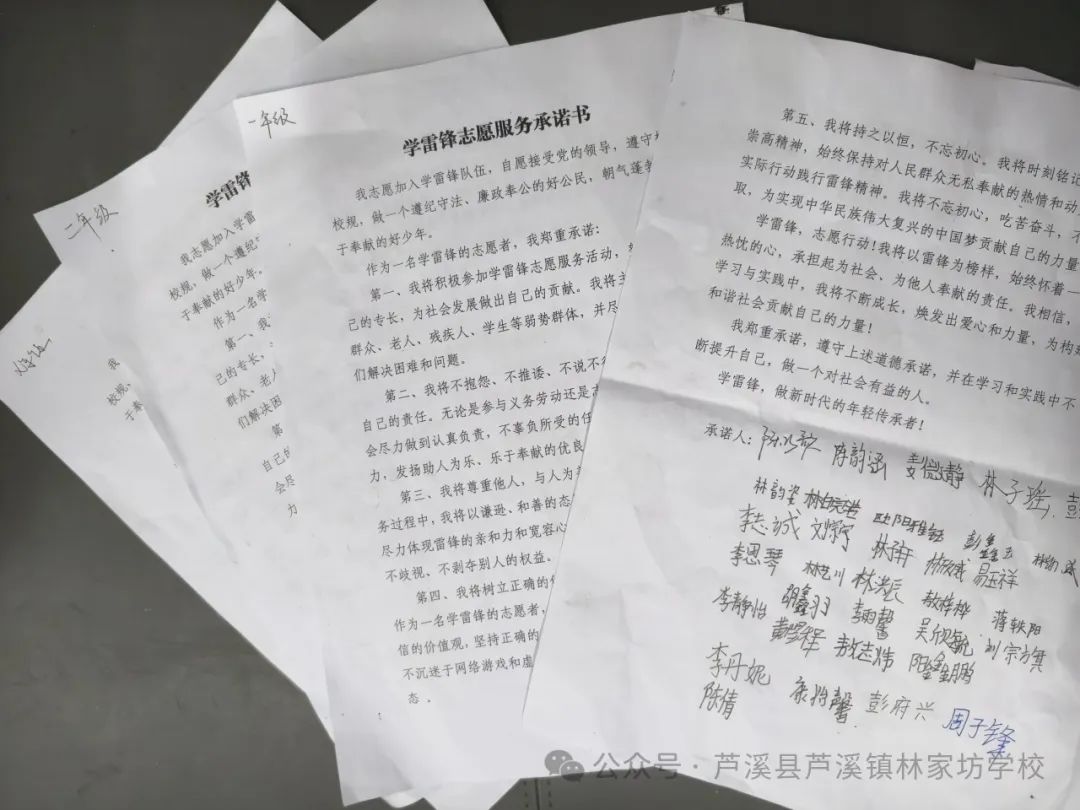 一年级
学雷锋志愿服务承诺书
我志愿加入学雷锋队伍，自愿接受党的领导，遵守
校规，做一个遵纪守法、廉政奉公的好公民，朝气蓬
于奉献的好少年。
作为一名学雷锋的志愿者，我郑重承诺：
第一、我将积极参加学雷锋志愿服务活动，
己的专长，为社会发展做出自己的贡献。我将
群众、老人、残疾人、学生等弱势群体，并尽
们解决困难和问题。
第二、我将不抱怨、不推诿、不说不
自己的责任。无论是参与义务劳动还是
会尽力做到认真负责，不辜负所受的任
力，发扬助人为乐、乐于奉献的优良
第三、我将尊重他人，与人为
务过程中，我将以谦逊、和善的态
尽力体现雷锋的亲和力和宽容心
不歧视、不剥夺别人的权益。
第四、我将树立正确的
作为一名学雷锋的志愿者，
信的价值观，坚持正确的
不沉迷于网络游戏和虚
态。
第五、我将持之以恒，不忘初心。我将时刻铭记
崇高精神，始终保持对人民群众无私奉献的热情和动
实际行动践行雷锋精神。我将不忘初心，吃苦奋斗，不
取，为实现中华民族伟大复兴的中国梦贡献自己的力量
学雷锋，志愿行动！我将以雷锋为榜样，始终怀着一
热忱的心，承担起为社会、为他人奉献的责任。我相信，
学习与实践中，我将不断成长，焕发出爱心和力量，为构
和谐社会贡献自己的力量！
我郑重承诺，遵守上述道德承诺，并在学习和实践中不
断提升自己，做一个对社会有益的人。
学雷锋，做新时代的年轻传承者！
承诺人： 陈韵涵 林子瑶 彭
林韵姿 欧阳雅
李志诚 易玉祥
李恩琴 林艺川 林浩辰 敖梓桦 蒋轶阳
李静怡 胡鑫羽 李雨馨 刘宗方
敖志炜 阳鑫鹏
李丹妮 彭府兴 周子锋
陈倩
二年级
学雷锋
我志愿加入学雷
校规，做一个遵纪
于奉献的好少年。
作为一名学
第一、我
己的专长，
群众、老人
们解决困
第
自己的
会尽
力
我
校规，
于奉
公众号·芦溪县芦溪镇林家坊学校